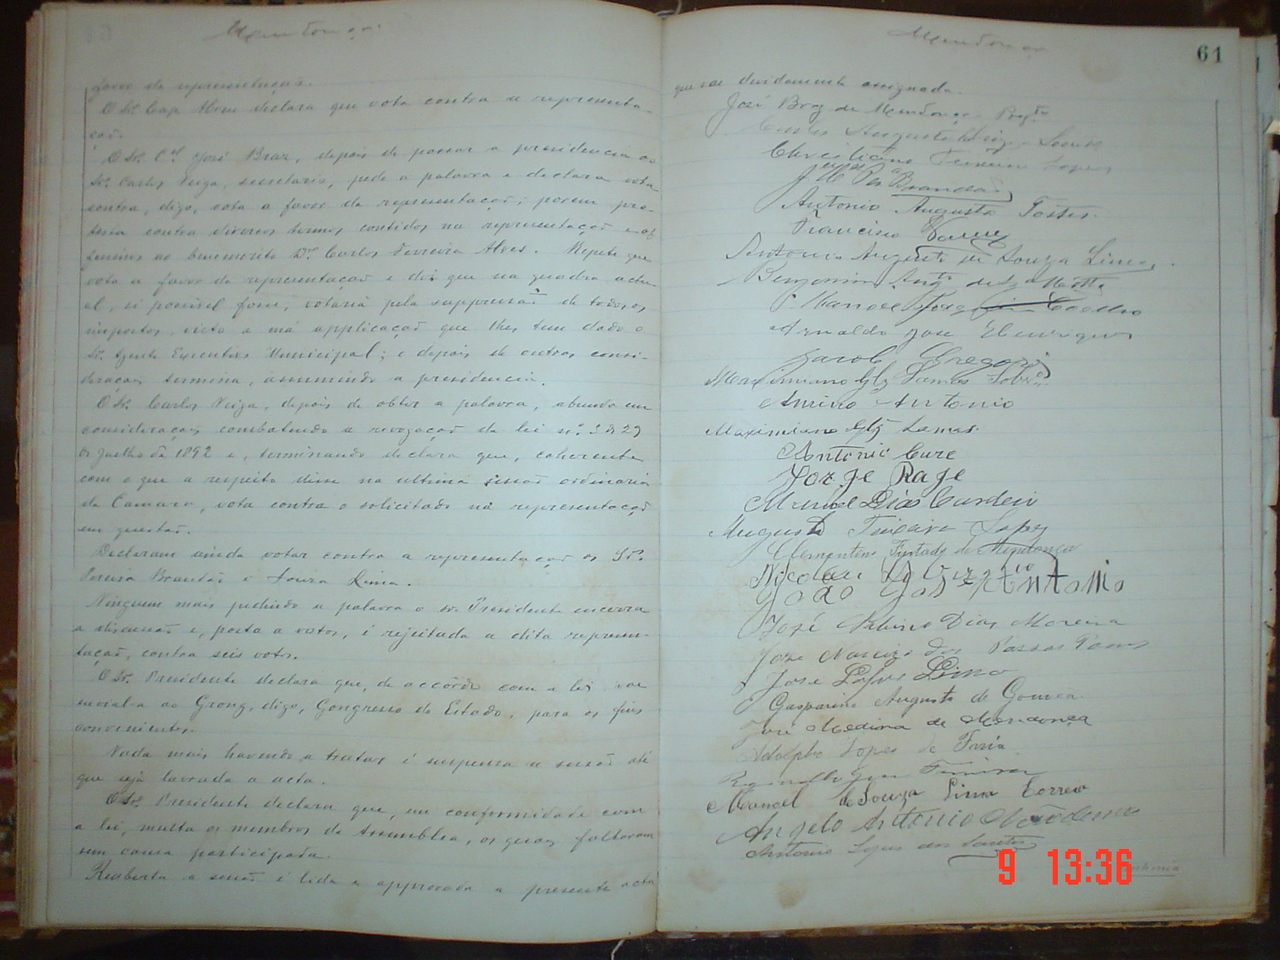 Mendonça
favor da representação.
O Sr. Cap. Abem declara que vota contra a representa-
ção.
O Sr. Cel. José Braz, depois de passar a presidencia ao
Sr. Carlos Veiga, secretario, pede a palavra e declara vota
contra, digo, vota a favor da representação; porem pro-
testa contra diversos termos contidos na representação e os
ao benemerito Dr. Carlos Ferreira Alves. Repete que
vota a favor da representação e diz que na quadra actu-
al, si possivel fosse, votaria pela suppressão de todos os
impostos, visto a má applicação que lhes tem dado o
Sr. Agente Executivo Municipal; e depois de outras consi-
deraçoes termina, assumindo a presidencia.
O Sr. Carlos Veiga, depois de obter a palavra, abunda em
consideraçoes combatendo a revogação da lei nº 2 de 29
de Julho de 1892 e, terminando declara que, coherente
com o que a respeito disse na ultima sessão ordinaria
da Camara, vota contra o solicitado na representação
em questão.
Declaram ainda votar contra a representação os Srs.
Pereira Brandão e Souza Lima.
Ninguem mais pedindo a palavra o sr. Presidente encerra
a discussão e, posta a votos, é rejeitada a dita represen-
tação, contra seis votos.
O Sr. Presidente declara que, de accôrdo com a lei vae
ao Grong, digo, Congresso do Estado, para os fins
convenientes.
Nada mais havendo a tratar é suspensa a sessão até
que seja lavrada a acta.
O Sr. Presidente declara que, em conformidade com
a lei, multa os membros da Assemblea, os quaes faltaram
sem causa participada.
Reaberta a sessão é lida e approvada a presente acta
Mendonça
61
que vae devidamente assignada.
José Braz de Mendonça Preste
Carlos Augusto Veiga
Christiano Teixeira Lopes
Brandão
Antonio Augusto Fortes
Francisco
Antonio Augusto de Souza Lima
Benjamin de Motta
Manoel Coelho
Arnaldo José Henriques
Jacob Gregorio
Maximiano Lemos Sobro
Amiro Antonio
Maximiano Lemos
Antonio Cure
Jorge Rage
Manoel Dias Cardoso
Augusto Teixeira Lopes
Clementino Furtado de Mendonça
Nicolau
João José Antonio
José Sabino Dias Moreira
José Narcizo dos Passos
José Lopes Lima
Gasparino Augusto de Gouvea
José Medina de Mendonça
Adolpho Lopes de Faria
Teixeira
Manoel de Souza Lima Correa
Angelo Antonio
Antonio Lopes dos Santos
9 13:36